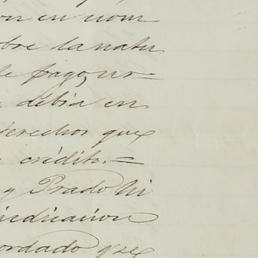 on en nom
bre la natu
de pago, no=
debia en
derechos que
credito.=
y Prado Mi
indicacion
ordado que